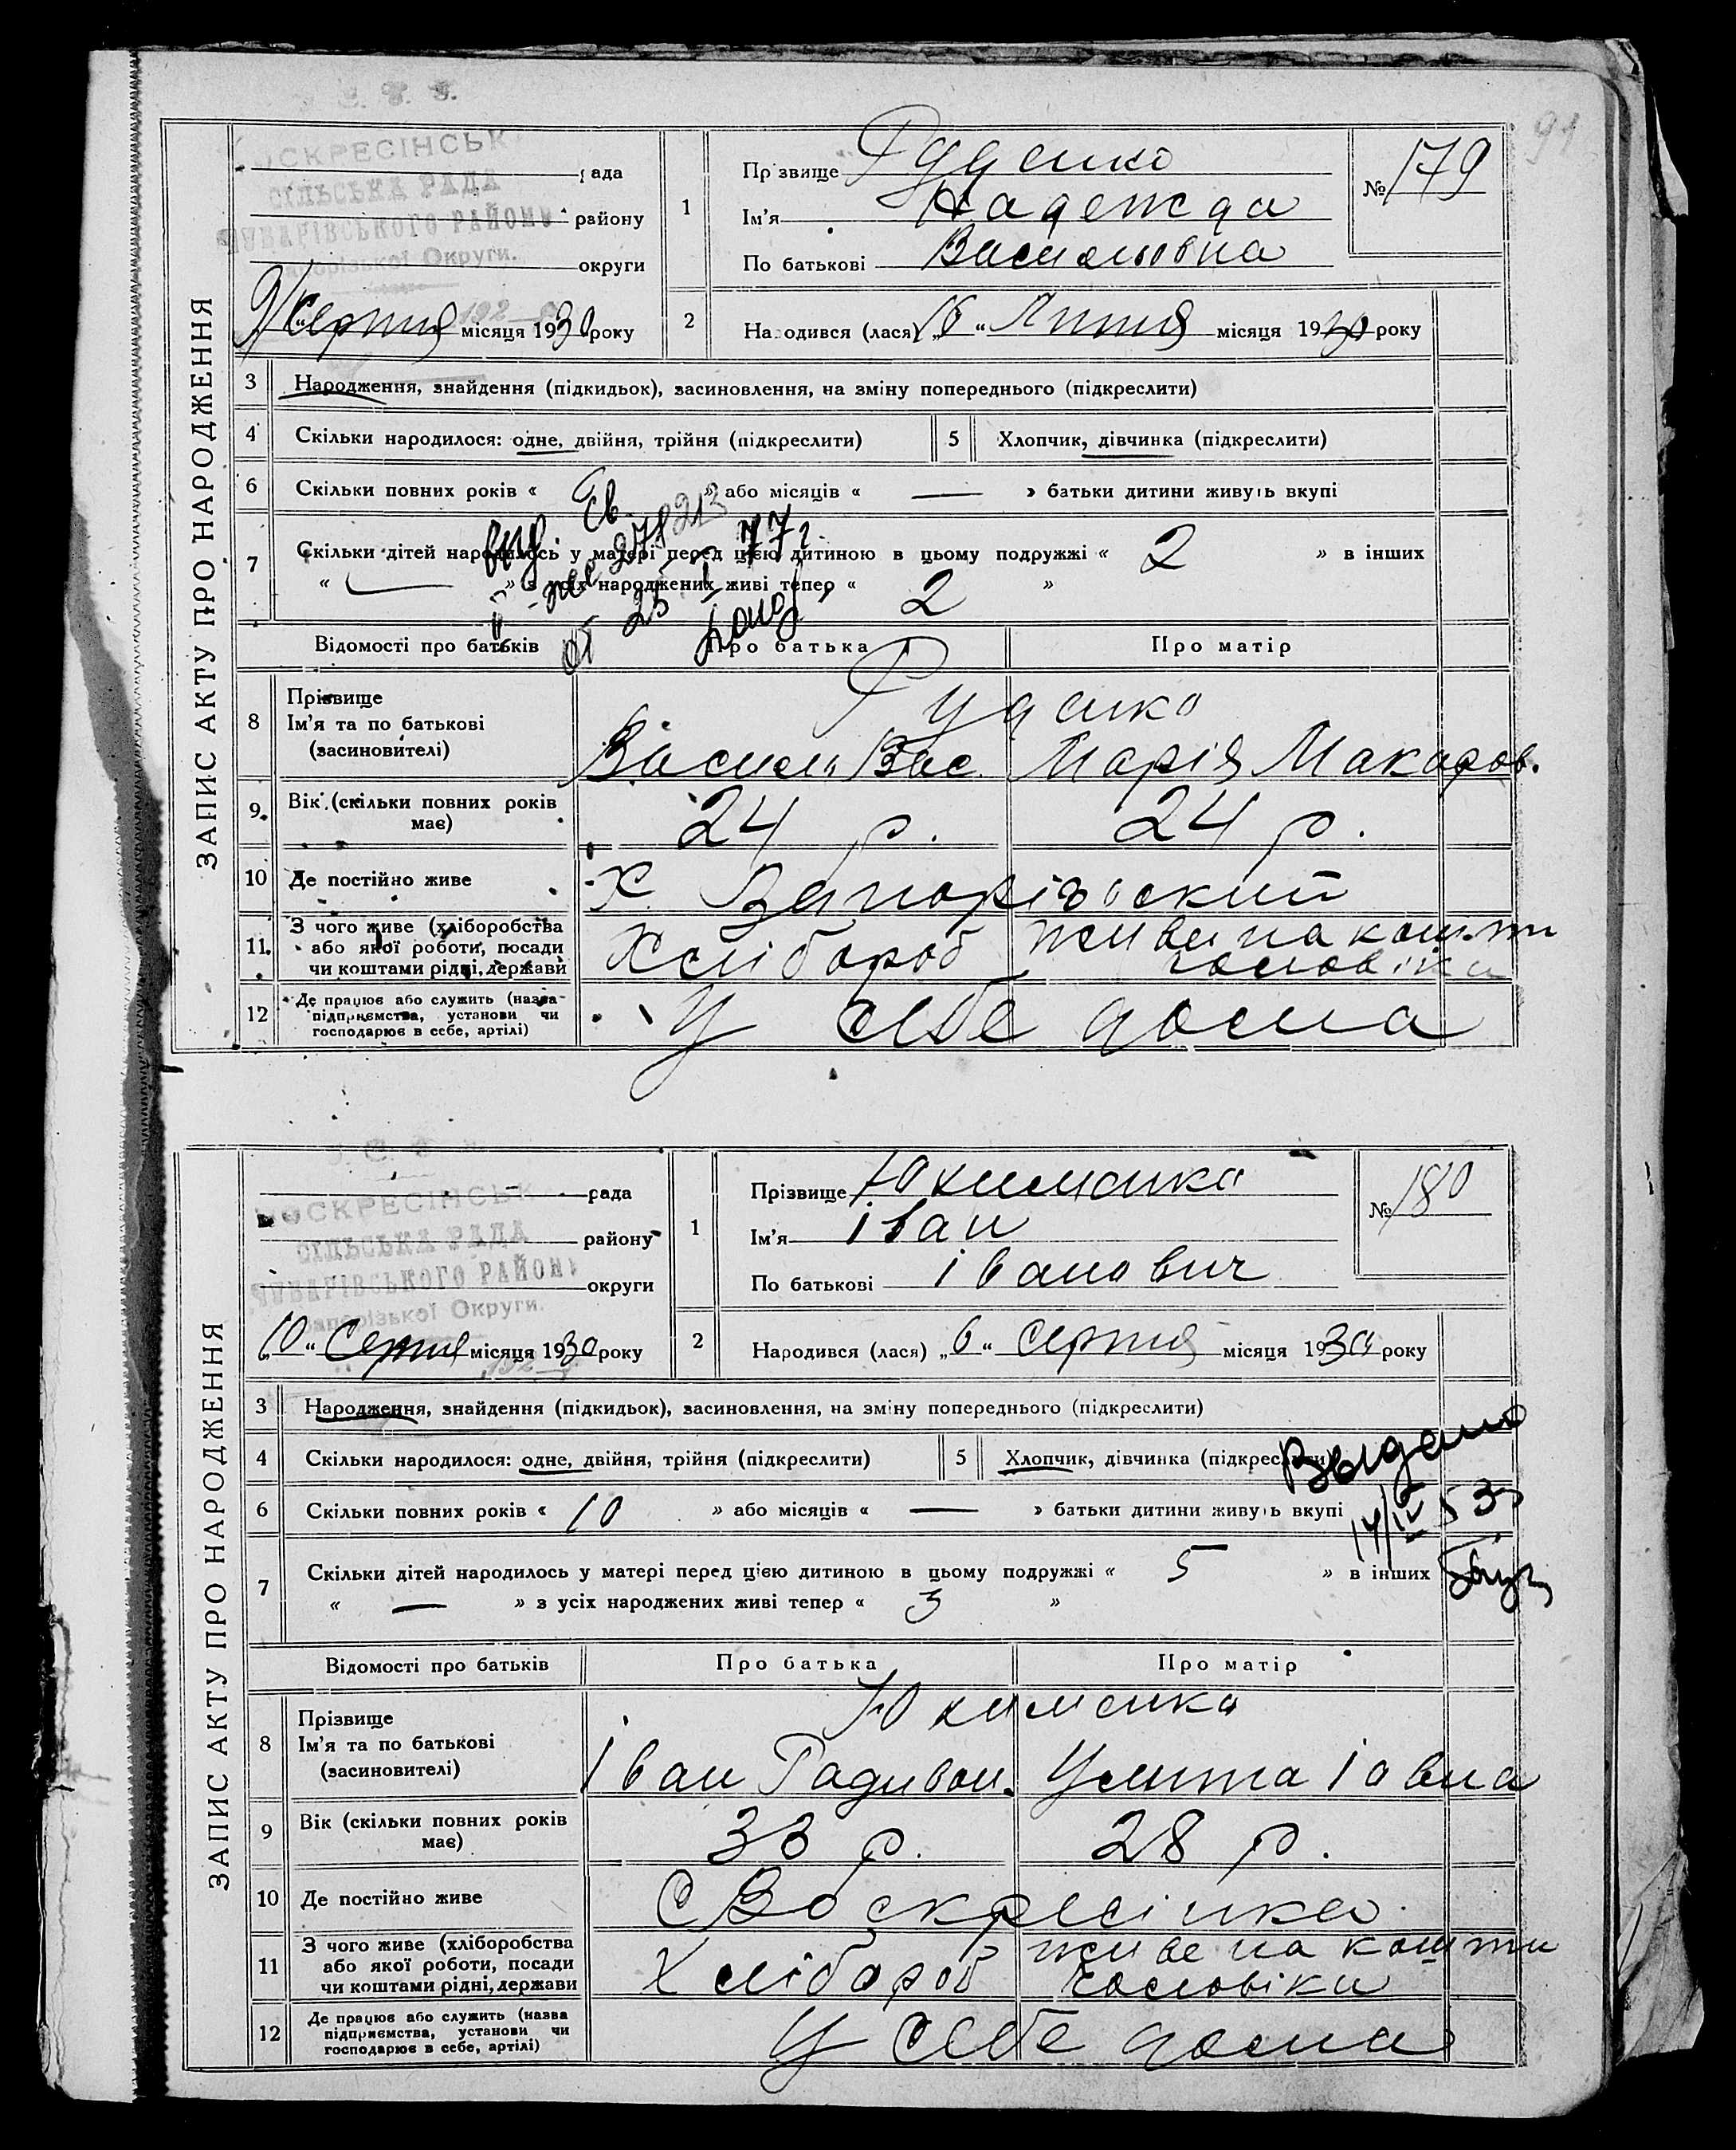 91
ЗАПИС АКТУ ПРО НАРОДЖЕННЯ
ВОСКРЕСІНСЬК
СІЛЬСЬКА РАДА
ЧУБАРІВСЬКОГО РАЙОНУ
Запорізької Округи.
рада
району
округи
9/ Серпня місяця 1930 року
1
Прізвище Руденко
Ім'я Надежда
По батькові Васильовна
№ 179
2
Народився (лася) „16“ Липня місяця 1930 року
3 Народження, знайдення (підкидьок), засиновлення, на зміну попереднього (підкреслити)
4 Скільки народилося: одне, двійня, трійня (підкреслити)
5 Хлопчик, дівчинка (підкреслити)
6 Скільки повних років « » або місяців « — » батьки дитини живуть вкупі
7 Скільки дітей народилось у матері перед цією дитиною в цьому подружжі « 2 » в інших
« — » з усіх народжених живі тепер « 2 »
278213
от 25 I 77 г.
Відомості про батьків Про батька Про матір
8 Прізвище
Ім'я та по батькові
(засновителі)
Руденко
Василь Вас. Марія Макаров.
9 Вік (скільки повних років має) 24 р. 24 р.
10 Де постійно живе Х. Запорізький
11 З чого живе (хліборобства або якої роботи, посади чи коштами рідні, держави
Хлібороб живе на кошти чоловіка
12 Де працює або служить (назва підприємства, установи чи господарює в себе, артілі)
У себе дома
ЗАПИС АКТУ ПРО НАРОДЖЕННЯ
ВОСКРЕСІНСЬК
СІЛЬСЬКА РАДА
ЧУБАРІВСЬКОГО РАЙОНУ
Запорізької Округи.
рада
району
округи
„10“ Серпня місяця 1930 року
1
Прізвище Юхименко
Ім'я Іван
По батькові Іванович
№ 180
2
Народився (лася) „6“ Серпня місяця 1930 року
3 Народження, знайдення (підкидьок), засиновлення, на зміну попереднього (підкреслити)
4 Скільки народилося: одне, двійня, трійня (підкреслити)
5 Хлопчик, дівчинка (підкреслити)
Выдано
14/IV 53
6 Скільки повних років « 10 » або місяців « — » батьки дитини живуть вкупі
7 Скільки дітей народилось у матері перед цією дитиною в цьому подружжі « 5 » в інших
« — » з усіх народжених живі тепер « 3 »
Відомості про батьків Про батька Про матір
8 Прізвище
Ім'я та по батькові
(засиновителі)
Юхименко
Іван Радивон. Улита Іовна
9 Вік (скільки повних років має) 33 р. 28 р.
10 Де постійно живе С Воскресінка
11 З чого живе (хліборобства або якої роботи, посади чи коштами рідні, держави
Хлібороб живе на кошти чоловіка
12 Де працює або служить (назва підприємства, установи чи господарює в себе, артілі)
У себе дома